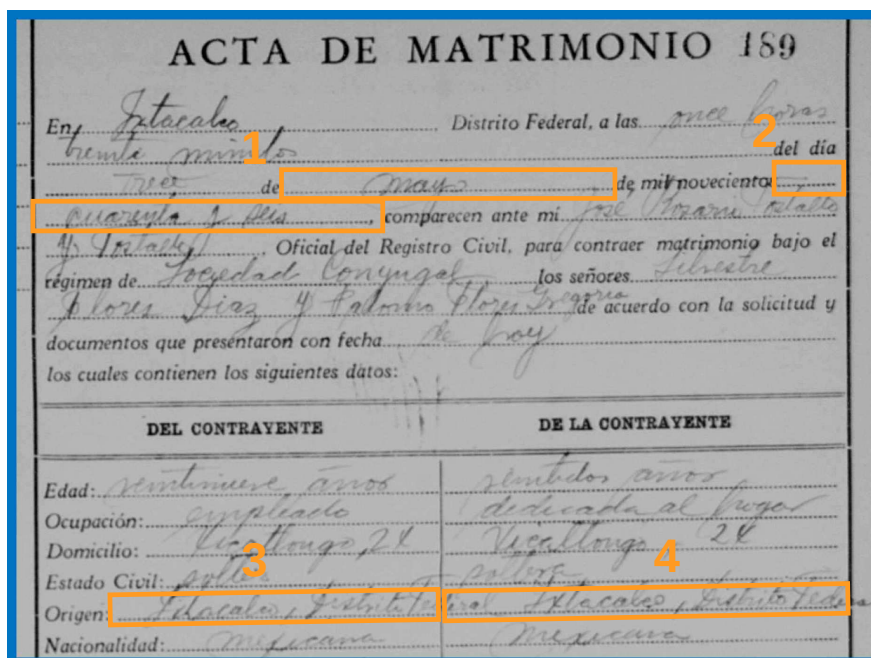 ACTA DE MATRIMONIO 189
En Ixtacalco Distrito Federal, a las once horas
1 2
treinta minutos del día
trece de mayo de mil novecientos
cuarenta y seis, comparecen ante mi José Rosario Postalto
y Oficial del Registro Civil, para contraer matrimonio bajo el
régimen de Sociedad Conyugal los señores Silvestre
Flores Diaz y Palomo Flores Gregoria de acuerdo con la solicitud y
documentos que presentaron con fecha de hoy
los cuales contienen los siguientes datos:
DEL CONTRAYENTE DE LA CONTRAYENTE
Edad: veintinueve años veintidos años
Ocupación: empleado dedicada al hogar
Domicilio: 24 24
3 4
Estado Civil: soltero soltera
Origen: Ixtacalco, Distrito Federal Ixtacalco, Distrito Federal
Nacionalidad: mexicana mexicana